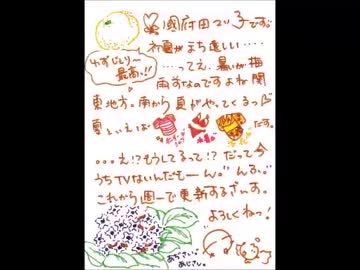 國府田マリ子です。
初夏がまち遠しい・・・・
・・・・ってえ、暑いが梅
雨前なのですよね関
東地方。雨から夏がやってくるっ
夏といえば
だす。
。。。え!?もうしてるって!?だって今
うちTVないんだもーん。んが。
これから週一で更新するざいす。
よろしくねっ!
いずじしり〜
最高っ!!
水着
あぢさい。
あじさい。